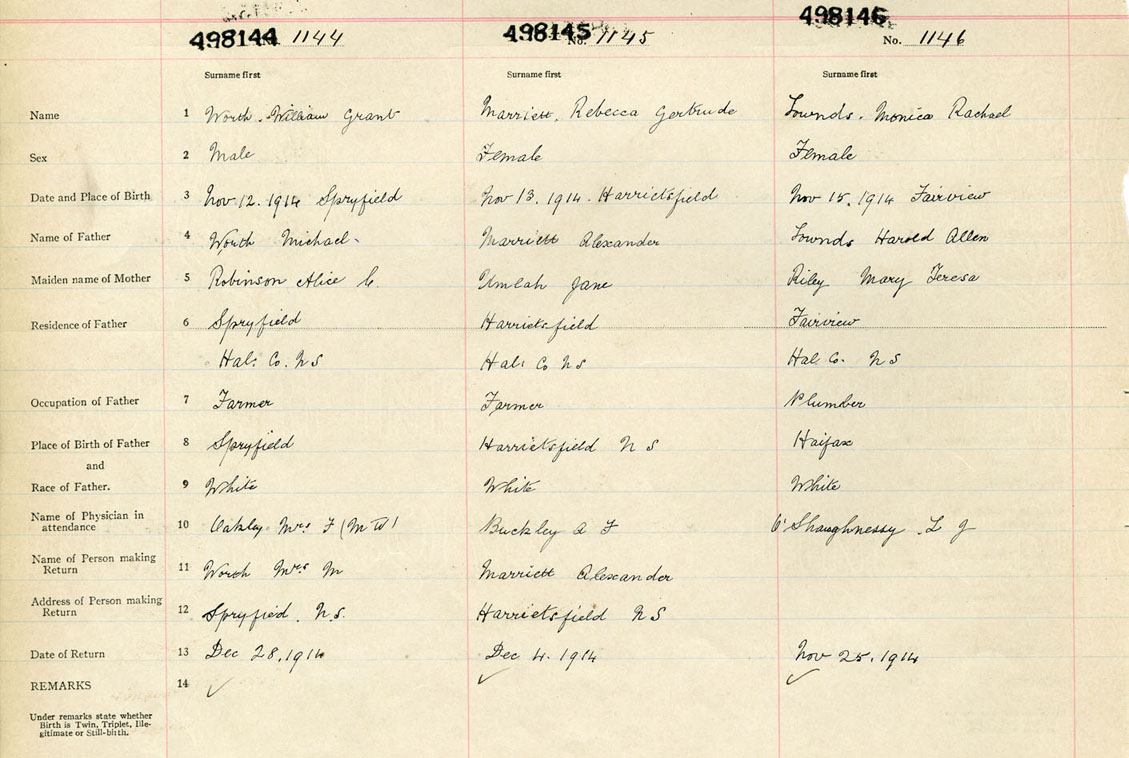 498144 498145 498146
No. 1144 No. 1145 No. 1146
Surname first Surname first Surname first
Name 1 Worth. William Grant Marriett. Rebecca Gertrude Lownds. Monica Rachael
Sex 2 Male Female Female
Date and Place of Birth 3 Nov 12. 1914 Spryfield Nov 13. 1914. Harrietsfield Nov 15, 1914 Fairview
Name of Father 4 Worth Michael Marriett Alexander Lownds Harold Allen
Maiden name of Mother 5 Robinson Alice C. Umlah Jane Riley Mary Teresa
Residence of Father 6 Spryfield Harrietsfield Fairview
Hal. Co. NS Hal. Co NS Hal. Co. NS
Occupation of Father 7 Farmer Farmer Plumber
Place of Birth of Father 8 Spryfield Harrietsfield NS Haifax
and
Race of Father. 9 White White White
Name of Physician in
attendance 10 Oakley Mrs F (M W) Buckley A F O'Shaughnessy. L J
Name of Person making
Return 11 Worth Mrs M Marriett Alexander
Address of Person making
Return 12 Spryfied. N.S. Harrietsfield NS
Date of Return 13 Dec 28, 1914 Dec 4. 1914 Nov 25. 1914
REMARKS 14 ✓ ✓ ✓
Under remarks state whether
Birth is Twin, Triplet, Ille-
gitimate or Still-birth.